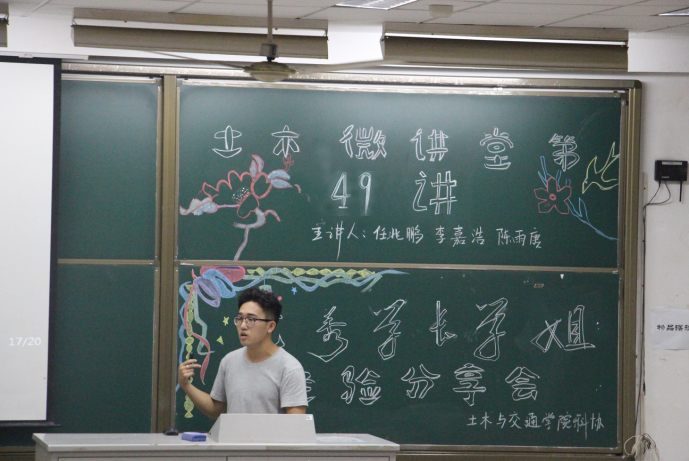 土木微讲堂第
49讲
主讲人：任兆鹏 李嘉浩 陈雨唐
秀学长学姐
验分享会
土木与交通学院科协
17/20